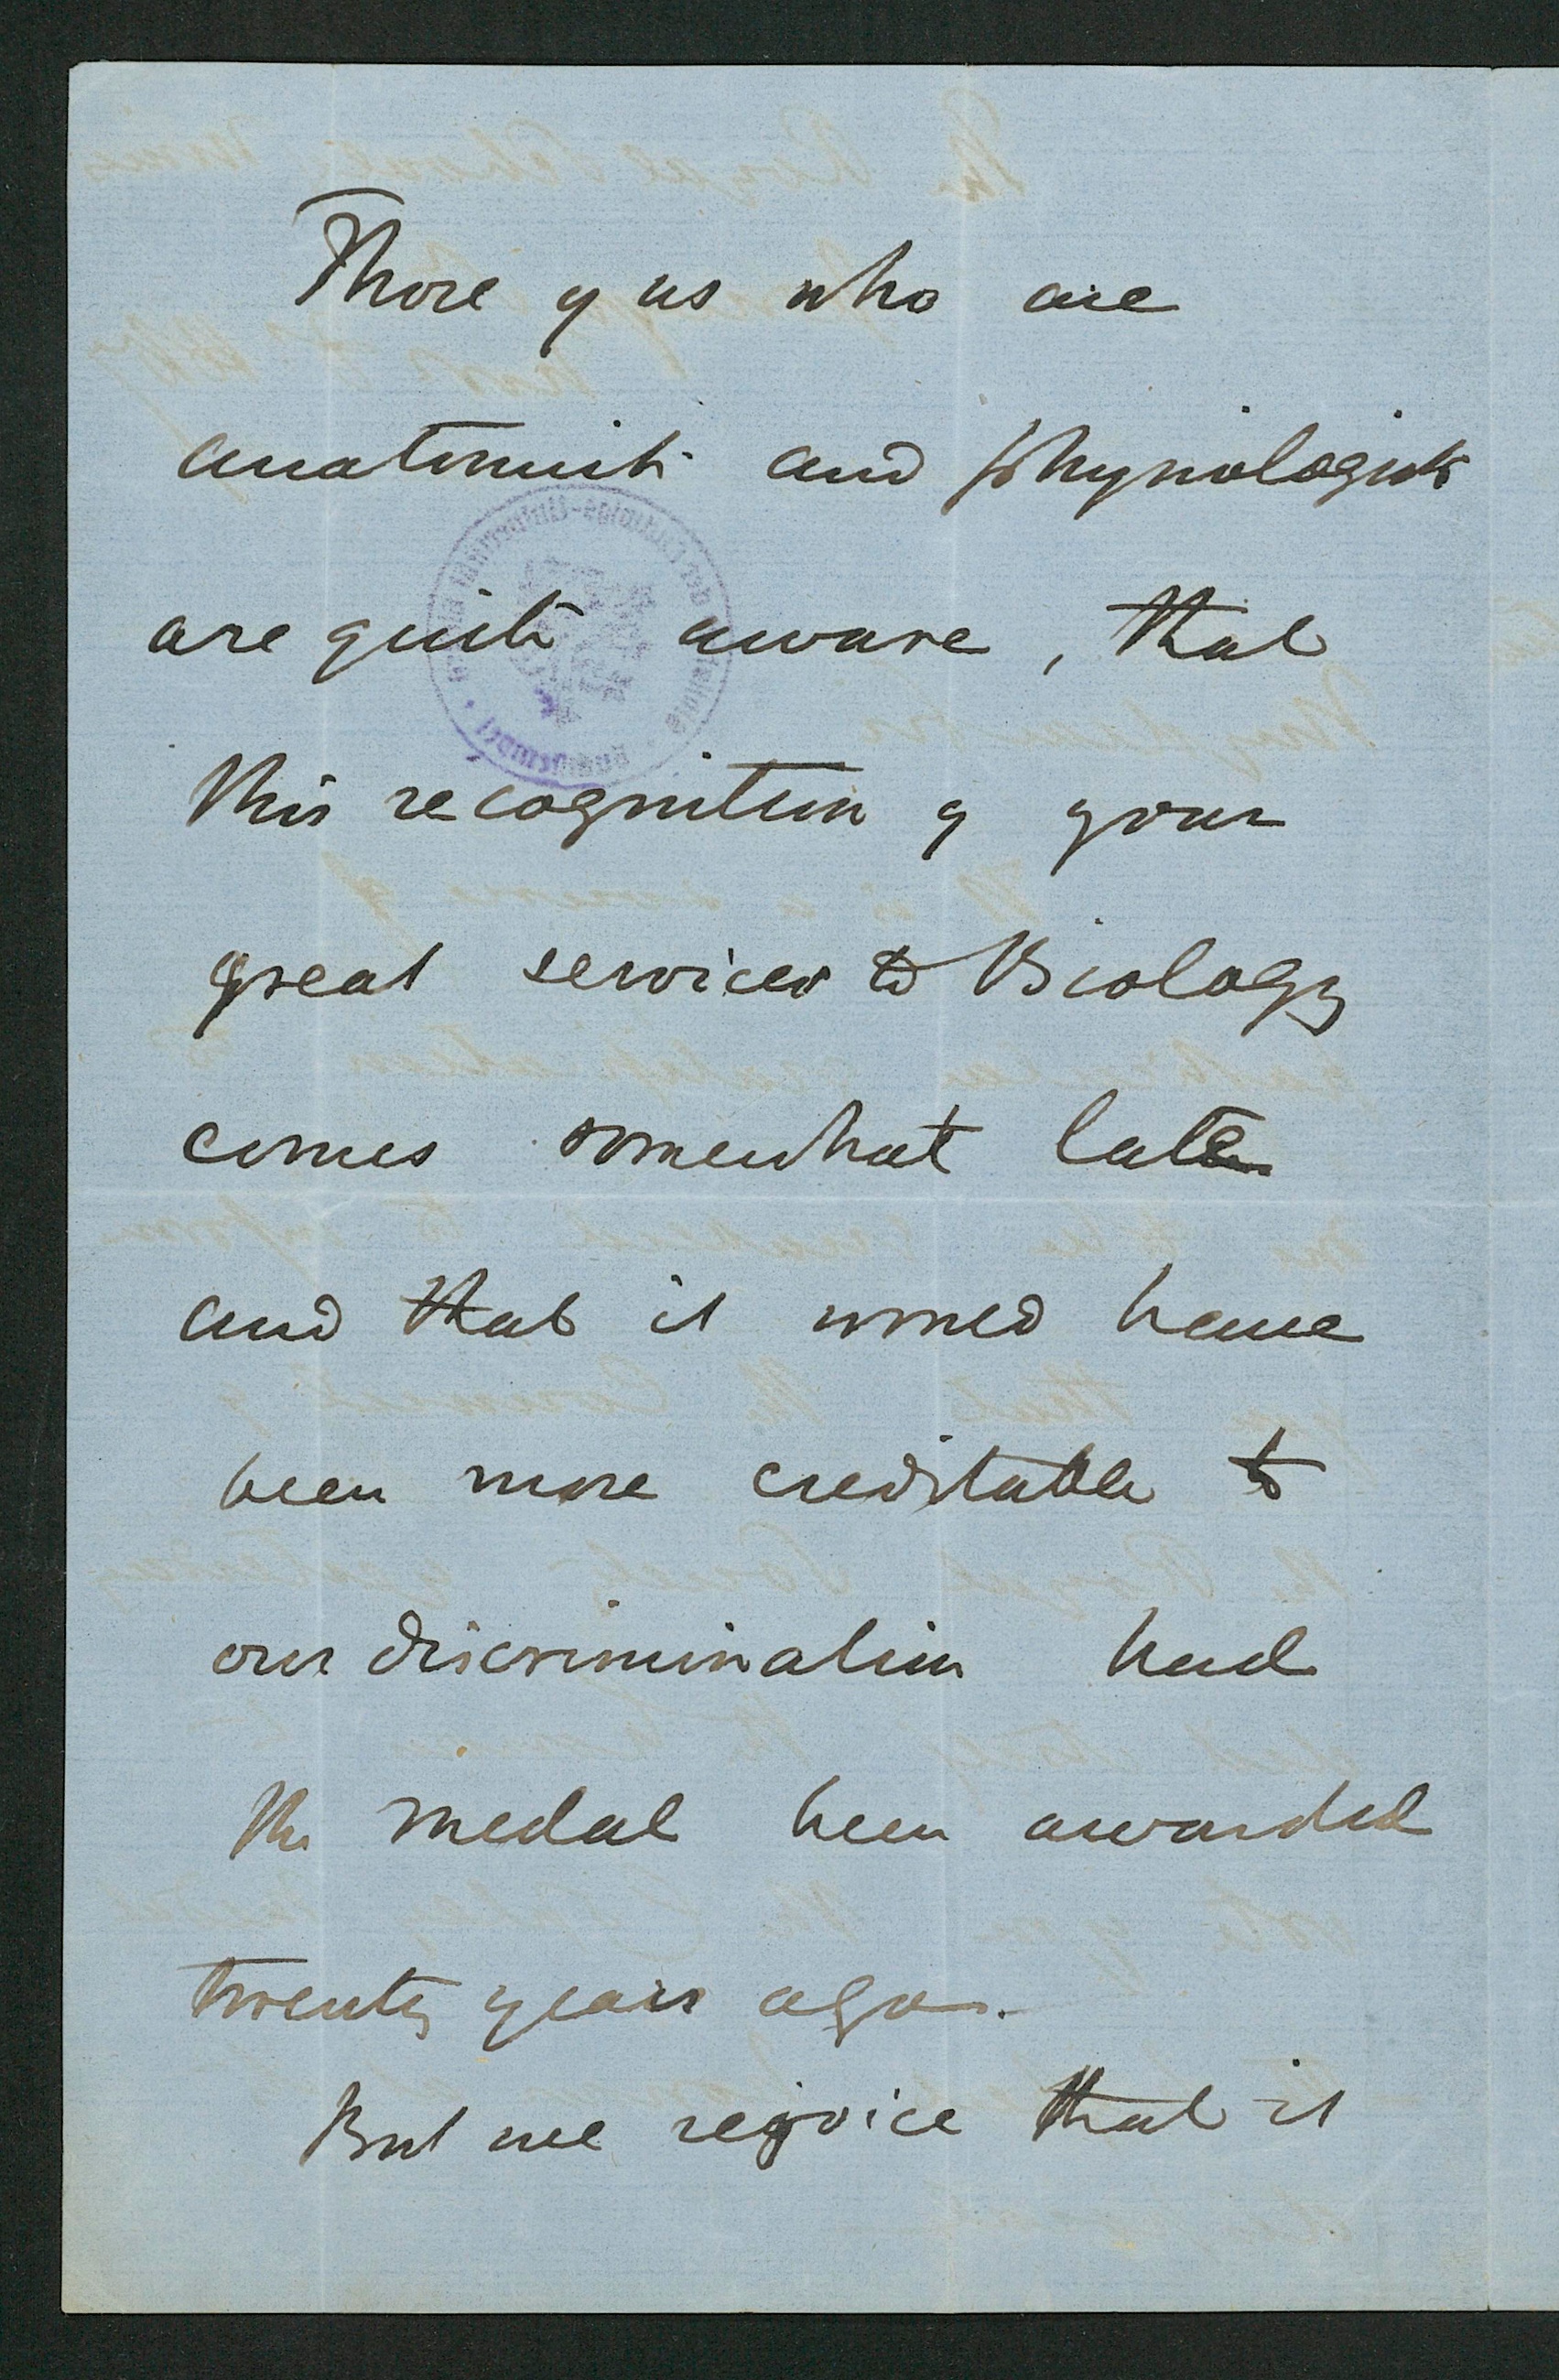 Those of us who are
anatomists and physiologists
are quite aware, that
this recognition of your
great services to Biology
comes somewhat late
and that it would have
been more creditable to
our discrimination had
the medal been awarded
twenty years ago.
But we rejoice that it